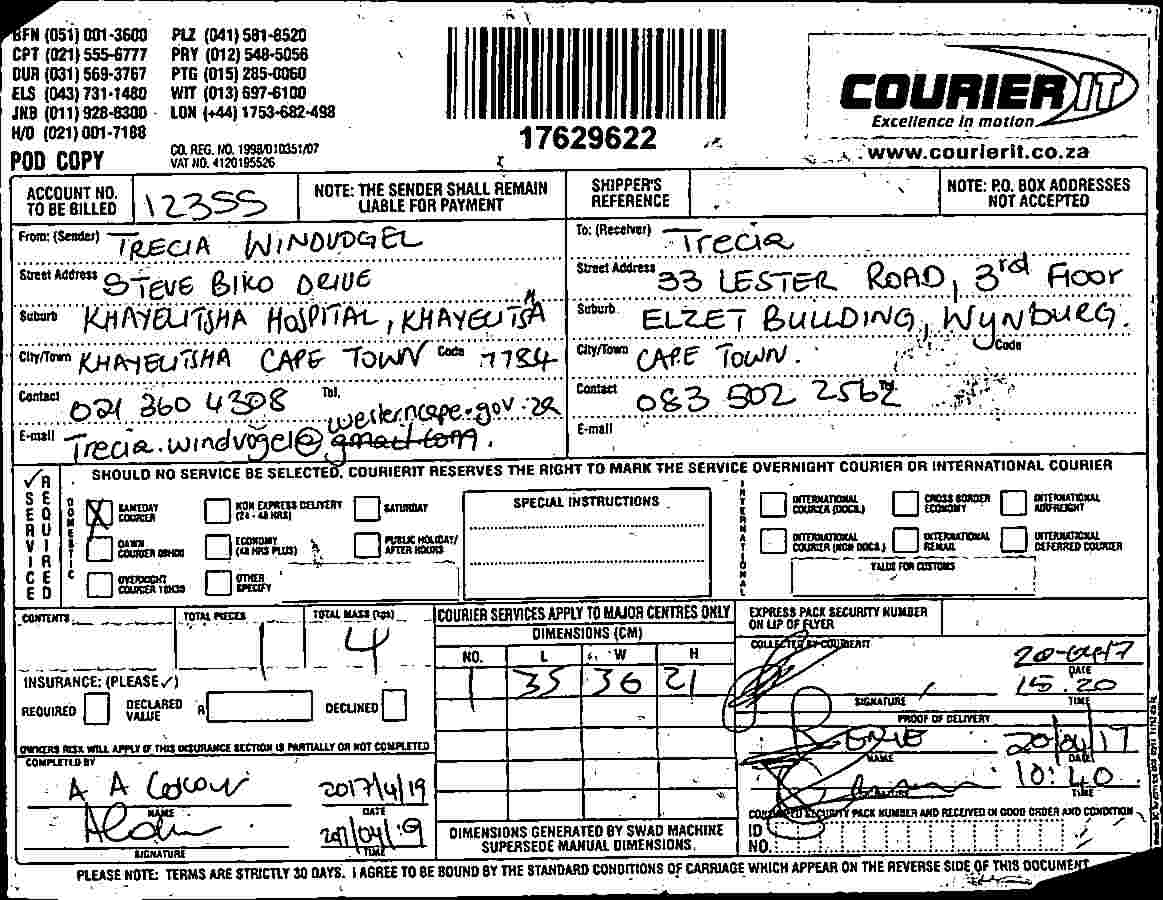 BFN (051) 001-3600 PLZ (041) 581-8520
CPT (021) 555-6777 PRY (012) 548-5056
DUR (031) 569-3767 PTG (015) 285-0060
ELS (043) 731-1480 WIT (013) 697-6100
JNB (011) 928-8300 LON (+44) 1753-682-498
H/O (021) 001-7188
POD COPY
CO. REG. NO. 1998/010351/07
VAT NO. 4120195526
17629622
COURIER IT
Excellence in motion
www.courierit.co.za
ACCOUNT NO. TO BE BILLED 12355
NOTE: THE SENDER SHALL REMAIN LIABLE FOR PAYMENT
SHIPPER'S REFERENCE
NOTE: P.O. BOX ADDRESSES NOT ACCEPTED
From: (Sender) TRECIA WINDVOGEL
Street Address STEVE BIKO DRIVE
Suburb KHAYELITSHA HOSPITAL, KHAYELITSHA
City/Town KHAYELITSHA CAPE TOWN Code 7784
Contact 021 360 4308 Tel.
westerncape.gov.za
E-mail Trecia.windvogel@ gmail.com.
To: (Receiver) Trecia
Street Address 33 LESTER ROAD, 3rd Floor
Suburb ELZET BUILDING, WYNBURG.
City/Town CAPE TOWN. Code
Contact 083 502 2562 Tel.
E-mail
SHOULD NO SERVICE BE SELECTED, COURIERIT RESERVES THE RIGHT TO MARK THE SERVICE OVERNIGHT COURIER OR INTERNATIONAL COURIER
SERVICE REQUIRED
DOMESTIC
SAMEDAY COURIER
DAWN COURIER 08H00
OVERNIGHT COURIER 10H30
NON EXPRESS DELIVERY (24 - 48 HRS)
ECONOMY (48 HRS PLUS)
OTHER SPECIFY
SATURDAY
PUBLIC HOLIDAY/ AFTER HOURS
SPECIAL INSTRUCTIONS
INTERNATIONAL
INTERNATIONAL COURIER (DOCS.)
INTERNATIONAL COURIER (NON DOCS.)
CROSS BORDER ECONOMY
INTERNATIONAL REMAIL
INTERNATIONAL AIRFREIGHT
INTERNATIONAL DEFERRED COURIER
VALUE FOR CUSTOMS
CONTENTS
TOTAL PIECES 1
TOTAL MASS (kgs) 4
INSURANCE: (PLEASE ✓)
REQUIRED DECLARED VALUE R DECLINED
OWNERS RISK WILL APPLY IF THIS INSURANCE SECTION IS PARTIALLY OR NOT COMPLETED
COMPLETED BY
A A
2017/4/19
NAME DATE
SIGNATURE TIME
COURIER SERVICES APPLY TO MAJOR CENTRES ONLY
DIMENSIONS (CM)
NO. L W H
1 35 36 21
DIMENSIONS GENERATED BY SWAD MACHINE SUPERSEDE MANUAL DIMENSIONS.
EXPRESS PACK SECURITY NUMBER ON LIP OF FLYER
COLLECTED BY COURIERIT
DATE
15.20
SIGNATURE TIME
PROOF OF DELIVERY
20/04/17
NAME DATE
10:40
SIGNATURE TIME
SECURITY PACK NUMBER AND RECEIVED IN GOOD ORDER AND CONDITION
ID NO.
PLEASE NOTE: TERMS ARE STRICTLY 30 DAYS. I AGREE TO BE BOUND BY THE STANDARD CONDITIONS OF CARRIAGE WHICH APPEAR ON THE REVERSE SIDE OF THIS DOCUMENT